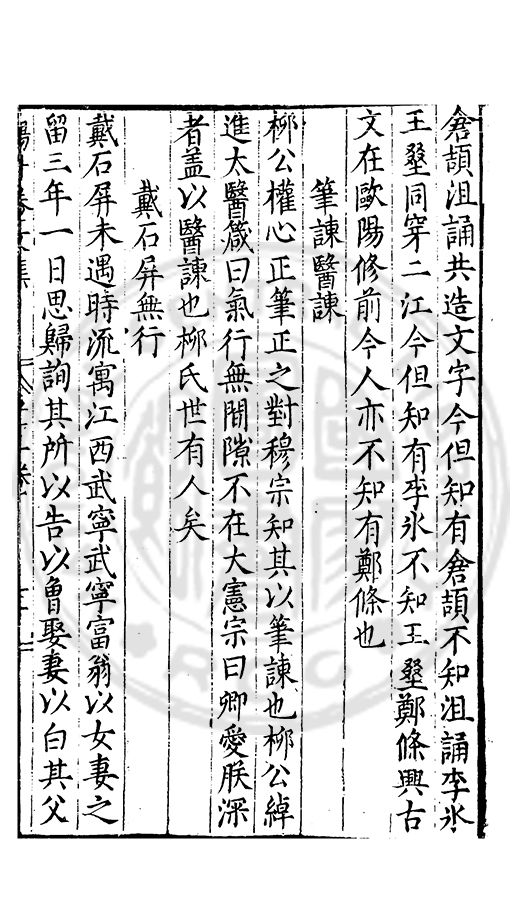 倉頡沮誦共造文字今但知有倉頡不知沮誦李氷
王㙲同穿二江今但知有李氷不知王㙲鄭條興古
文在歐陽修前今人亦不知有鄭條也
筆諫醫諫
柳公權心正筆正之對穆宗知其以筆諫也柳公綽
進太醫箴曰氣行無間隙不在大憲宗曰卿愛朕深
者盖以醫諫也柳氏世有人矣
戴石屏無行
戴石屏未遇時流寓江西武寧武寧富翁以女妻之
留三年一日思歸詢其所以告以曾娶妻以白其父